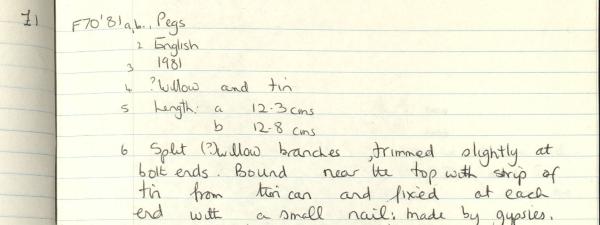 71 F70'81a,b.. Pegs
2 English
3 1981
4 ?Willow and tin
5 Length: a 12.3 cms
b 12-8 cms
6 Split (?)willow branches, trimmed slightly at
bolt ends. Bound near the top with strip of
tin from tin can and fixed at each
end with a small nail; made by gypsies.